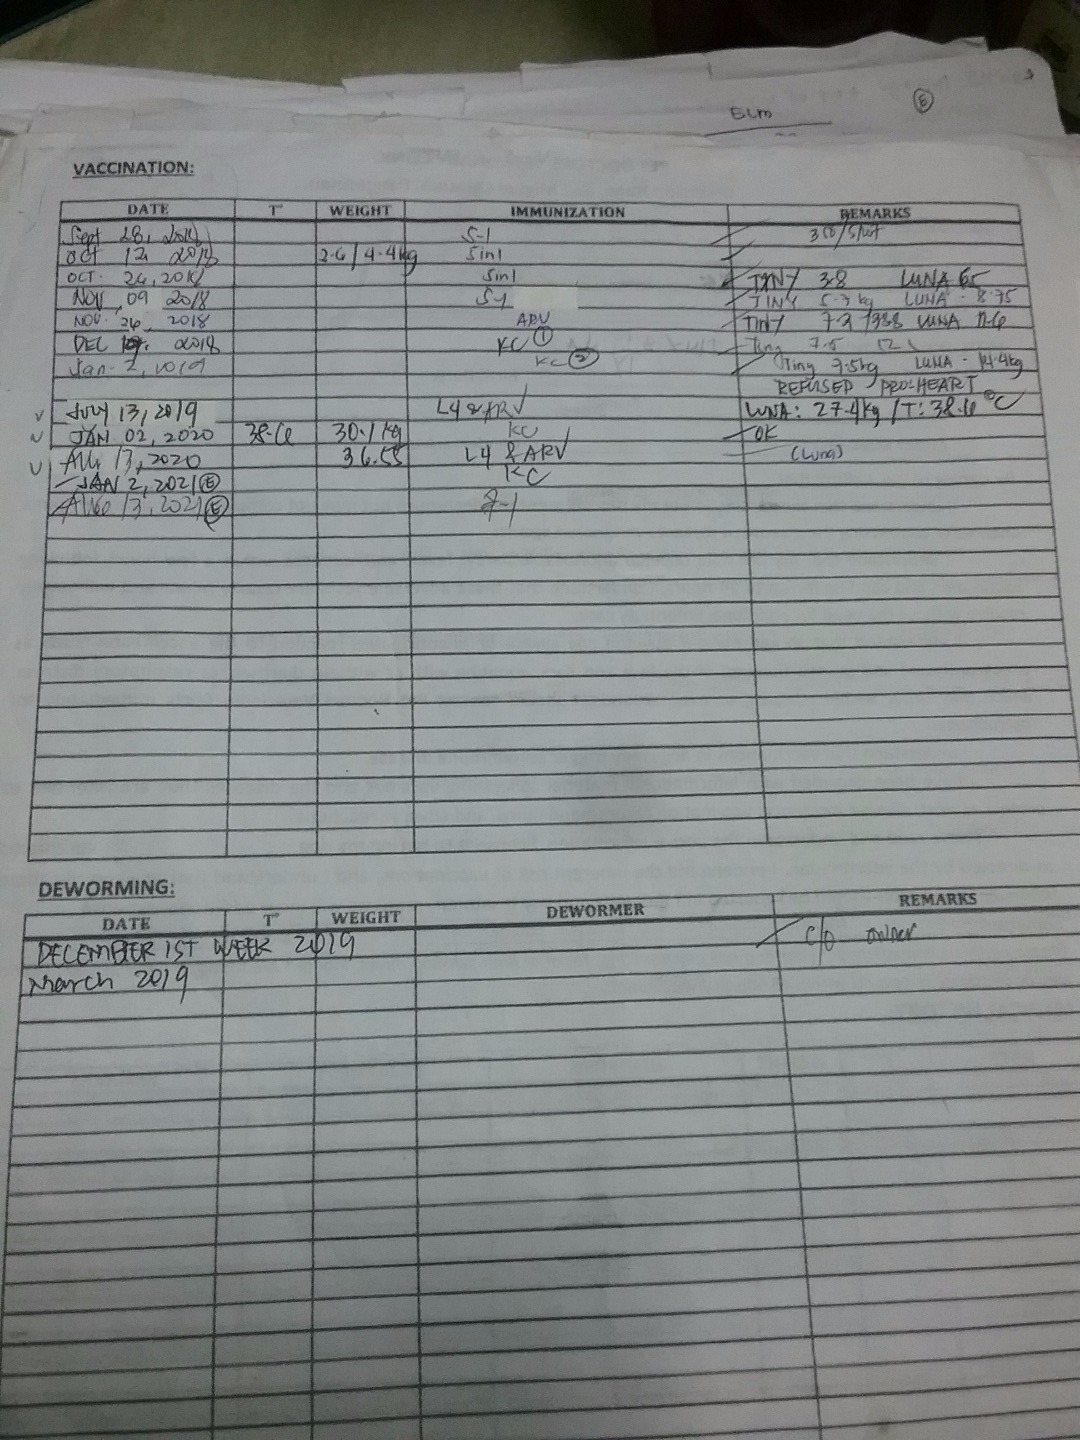 ELM
E
VACCINATION:
DATE T° WEIGHT IMMUNIZATION REMARKS
Sept 28, 2018 5-1 350/shot
OCT 12 2018 2.6/4.4kg 5in1
OCT. 26, 2018 5in1 TINY 3.8 LUNA 65
NOV 09 2018 5-1 TINY 5.7 kg LUNA - 8.75
NOV. 26, 2018 ARV TINY 7.3 LUNA 11.6
DEC 2018 KC 1 Tiny 7.5 12
Jan. 2, 2019 KC 2 Tiny 7.5kg LUNA - 14.4kg
REFUSED PRO-HEART
JULY 13, 2019 L4 & ARV LUNA: 27.4kg /T: 38.6 °C
JAN 02, 2020 38.6 30.1 kg KC OK
AUG 13, 2020 36.55 L4 & ARV (Luna)
JAN 2, 2021 E KC
AUG 13, 2021 E 8-1
DEWORMING:
DATE T° WEIGHT DEWORMER REMARKS
DECEMBER 1ST WEEK 2019 c/o owner
March 2019